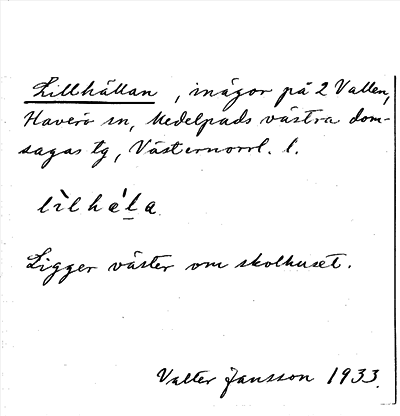 Lillhällan, inägor på 2 Vallen,
Haverö sn, Medelpads västra dom-
sagas tg, Västernorrl. l.
lìlhæ̀l̲a
Ligger väster om skolhuset.
Valter Jansson 1933.